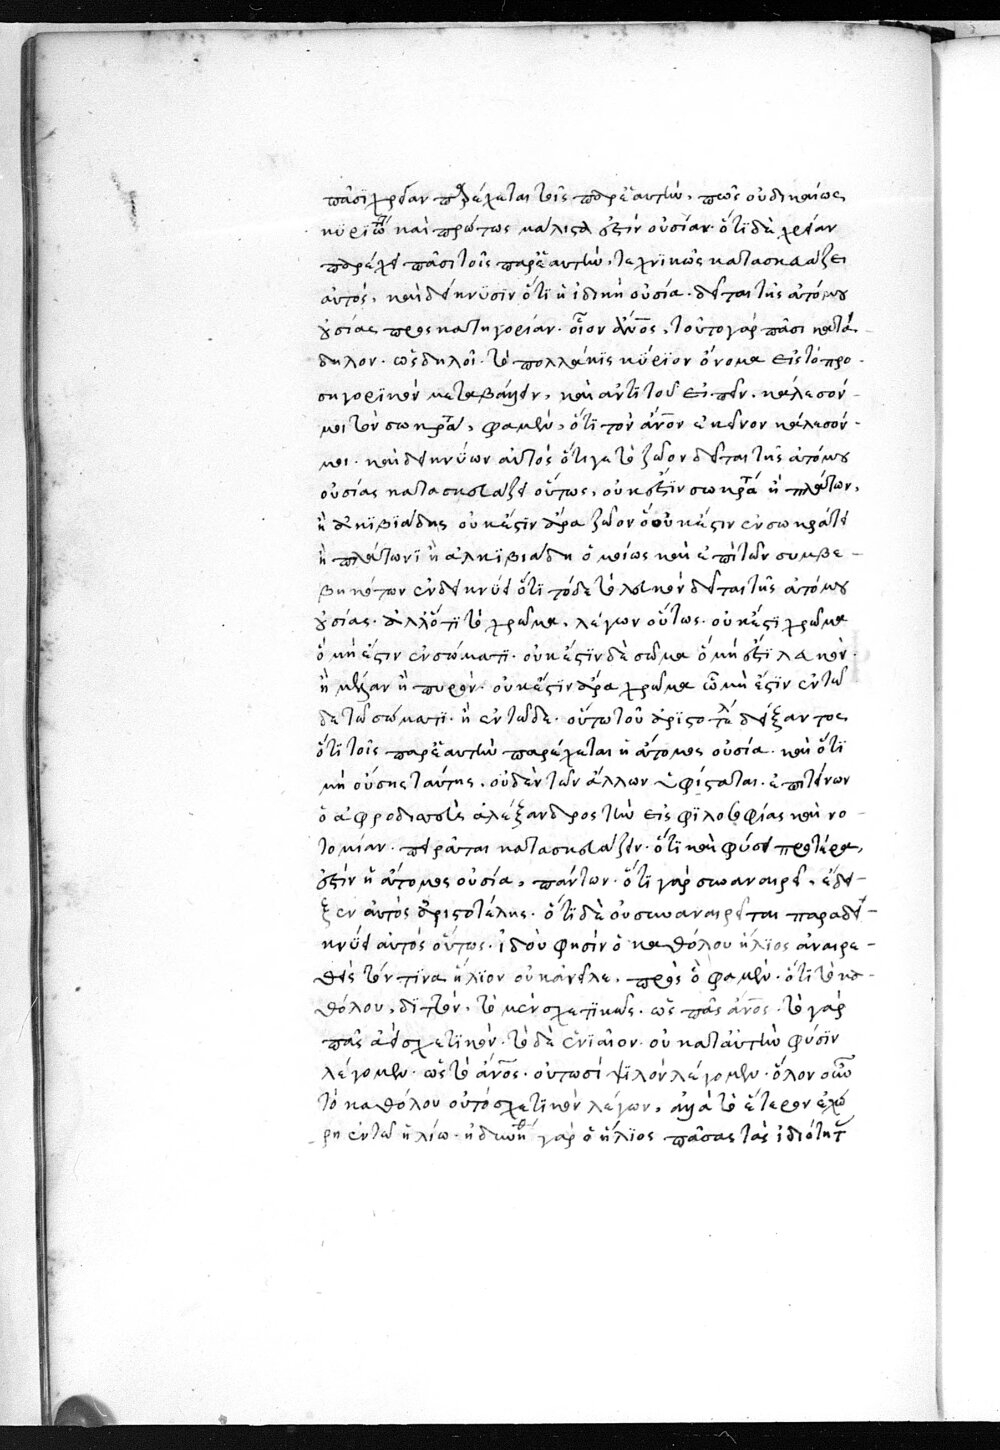 πᾶσι χρείαν παρέχεται τοῖς παρ' ἑαυτὴν, πῶς οὐ δικαίως
κυρίως καὶ πρώτως μάλιστα ἐστὶν οὐσία· ὅτι δὲ χρείαν
παρέχει πᾶσι τοῖς παρ' ἑαυτὴν, τεχνικῶς κατασκευάζει
αὐτός, καὶ δείκνυσιν ὅτι ἡ ἰδικὴ οὐσία δεῖται τῆς ἀτόμου
οὐσίας πρὸς κατηγορίαν· οἷον ἄνος, τοῦτο γὰρ πᾶσι κατά-
δηλον· ὡς δηλοῖ τὸ πολλάκις κύριον ὄνομα εἰς τὸ προ-
σηγορικὸν μεταβαίνειν, καὶ ἀντὶ τοῦ εἰπεῖν, κάλεσόν
μοι τὸν σωκράτη, φαμὲν, ὅτι τὸν ἄνον ἐκεῖνον κάλεσόν
μοι· καὶ δεικνύων αὐτὸς ὅτι γε τὸ ζῶον δεῖται τῆς ἀτόμου
οὐσίας κατασκευάζει οὕτως, οὐκ ἔστιν σωκράτης ἢ πλάτων,
ἢ ἀλκιβιάδης οὐκ ἔστιν ἄρα ζῶον ὃ οὐκ ἔστιν ἐν σωκράτει
ἢ πλάτωνι ἢ ἀλκιβιάδη ὁμοίως καὶ ἐπὶ τῶν συμβε-
βηκότων ἐνδείκνυται ὅτι τόδε τὸ λευκὸν δεῖται τῆς ἀτόμου
οὐσίας· ἀλλ' ὅτι τὸ χρῶμα, λέγων οὕτως· οὐκ ἔστι χρῶμα
ὃ μή ἐστιν ἐν σώματι· οὐκ ἔστιν δὲ σῶμα ὃ μή ἐστι λευκὸν
ἢ μέλαν ἢ πυρρόν· οὐκ ἔστιν ἄρα χρῶμα ὃ μή ἐστιν ἐν τῶ
δε τῶ σώματι· ἢ ἐν τῶδε· οὕτω τοῦ ἀριστοτέλους δείξαντος
ὅτι τοῖς παρ' ἑαυτὴν παρέχεται ἡ ἄτομος οὐσία· καὶ ὅτι
μὴ οὔσης ταύτης, οὐδὲν τῶν ἄλλων ὑφίσταται· ἐπιτείνων
ὁ ἀφροδισιεὺς ἀλέξανδρος τὴν εἰς φιλοσοφίας καινο-
τομίαν· πειρᾶται κατασκευάζειν· ὅτι καὶ φύσει προτέρα
ἐστὶν ἡ ἄτομος οὐσία, πάντων· ὅτι γὰρ συναναιρεῖ, ἔδει-
ξεν αὐτὸς ἀριστοτέλης· ὅτι δὲ οὐ συναναιρεῖται παραδεί-
κνυσι αὐτὸς οὕτως· ἰδοὺ φησὶν ὁ καθόλου ἥλιος ἀναιρε-
θεὶς τόν τινα ἥλιον οὐκ ἀνεῖλε, πρὸς ὃ φαμὲν· ὅτι τὸ κα-
θόλου, διττόν, τὸ μὲν σχετικῶς· ὡς πᾶς ἄνος· τὸ γὰρ
πᾶς ἀεὶ σχετικόν· τὸ δὲ ἑνιαῖον· οὐ κατ' αὐτὴν φύσιν
λέγομεν· ὡς τὸ ἄνος· οὑτωσὶ ψιλὸν λέγομεν· ὅλον οὖν
τὸ καθόλου οὐ τὸ σχετικὸν λέγων, ἀλλὰ τὸ ἕτερον ἐχώ
ρη ἐν τῶ ἡλίω· γὰρ ὁ ἥλιος πάσας τὰς ἰδιότητας